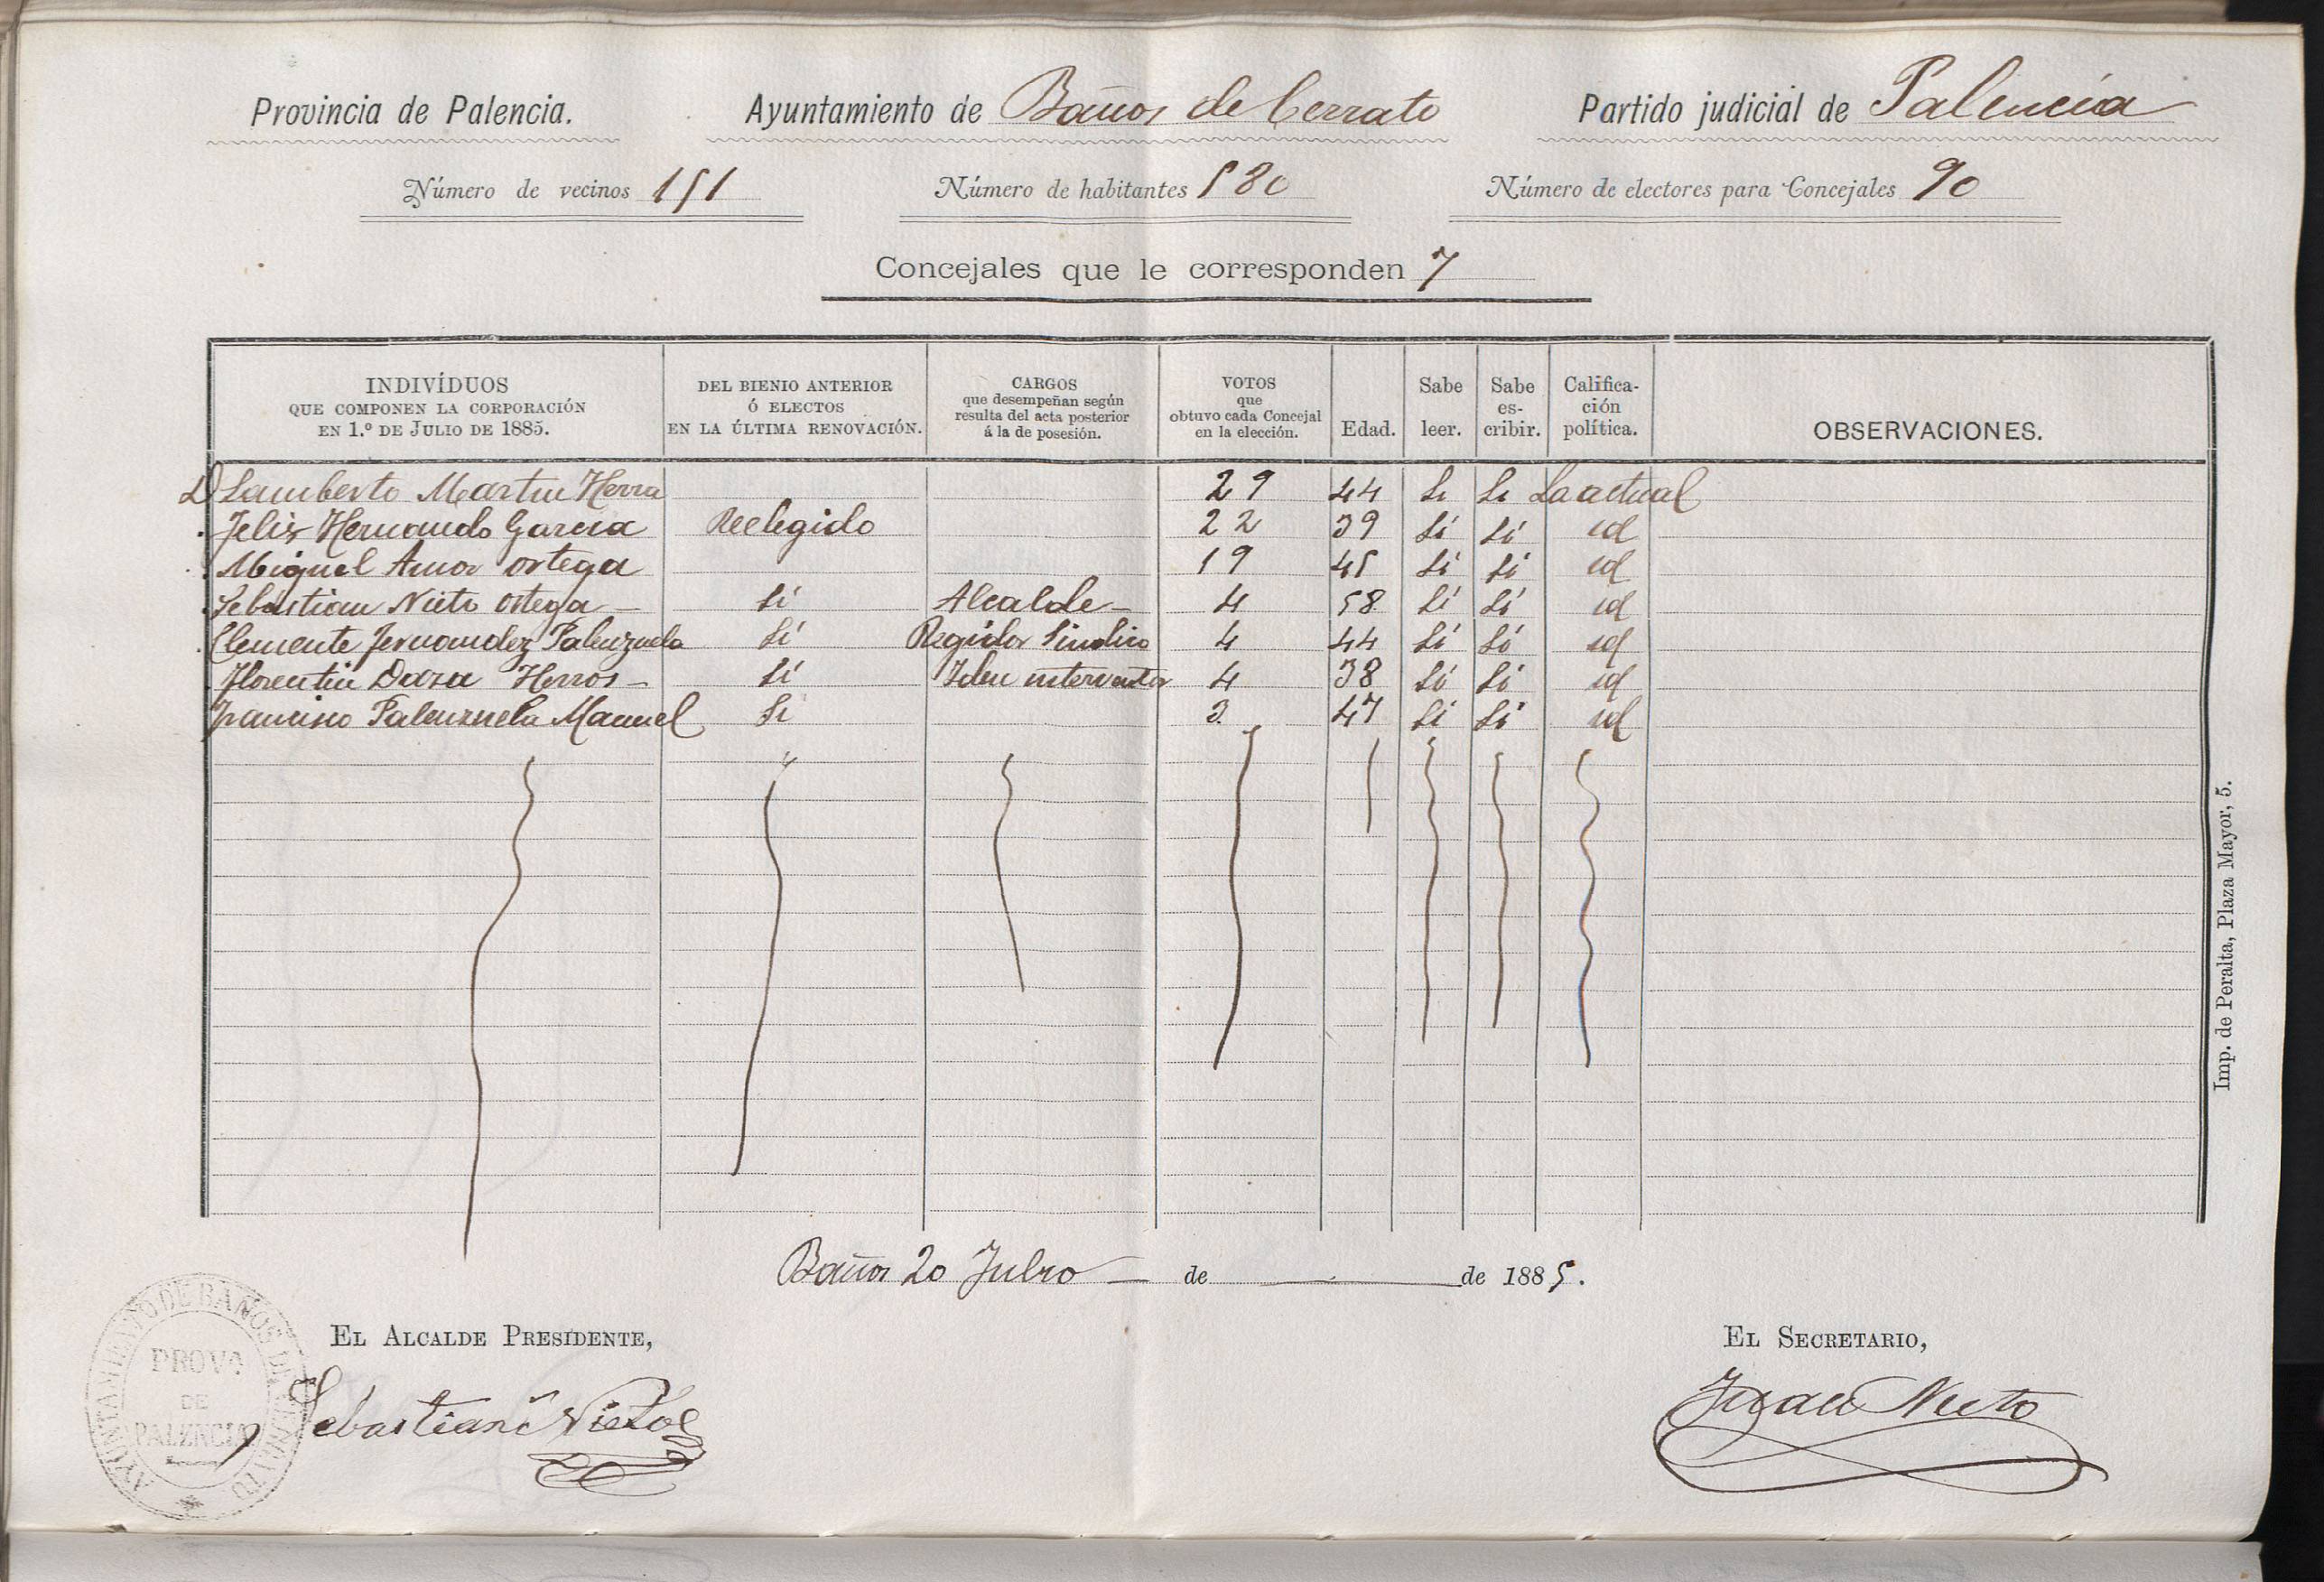 Provincia de Palencia. Ayuntamiento de Baños de Cerrato Partido judicial de Palencia
Número de vecinos 151 Número de habitantes 580 Número de electores para Concejales 90
Concejales que le corresponden 7
INDIVÍDUOS QUE COMPONEN LA CORPORACIÓN EN 1.º DE JULIO DE 1885. DEL BIENIO ANTERIOR Ó ELECTOS EN LA ÚLTIMA RENOVACIÓN. CARGOS que desempeñan según resulta del acta posterior á la de posesión. VOTOS que obtuvo cada Concejal en la elección. Edad. Sabe leer. Sabe es-cribir. Califica-ción política. OBSERVACIONES.
D Lamberto Martin Herra 29 44 Si Si La actual
Felix Hernando Garcia Reelegido 22 39 Sí Sí id
Miguel Amor Ortega 19 45 Sí Sí id
Sebastian Nieto Ortega Sí Alcalde 4 58 Sí Sí id
Clemente Fernandez Palenzuela Sí Regidor Sindico 4 44 Sí Sí id
Florentin Daza Herros Sí Idem interventor 4 38 Sí Sí id
Francisco Palenzuela Manuel Si 3 47 Sí Sí id
"
Imp. de Peralta, Plaza Mayor, 5.
Baños 20 Julio de de 1885.
EL ALCALDE PRESIDENTE, EL SECRETARIO,
Sebastian Nieto Juan Nieto
AYUNTAMIENTO DE BAÑOS DE CERRATO
PROVª
DE
PALENCIA